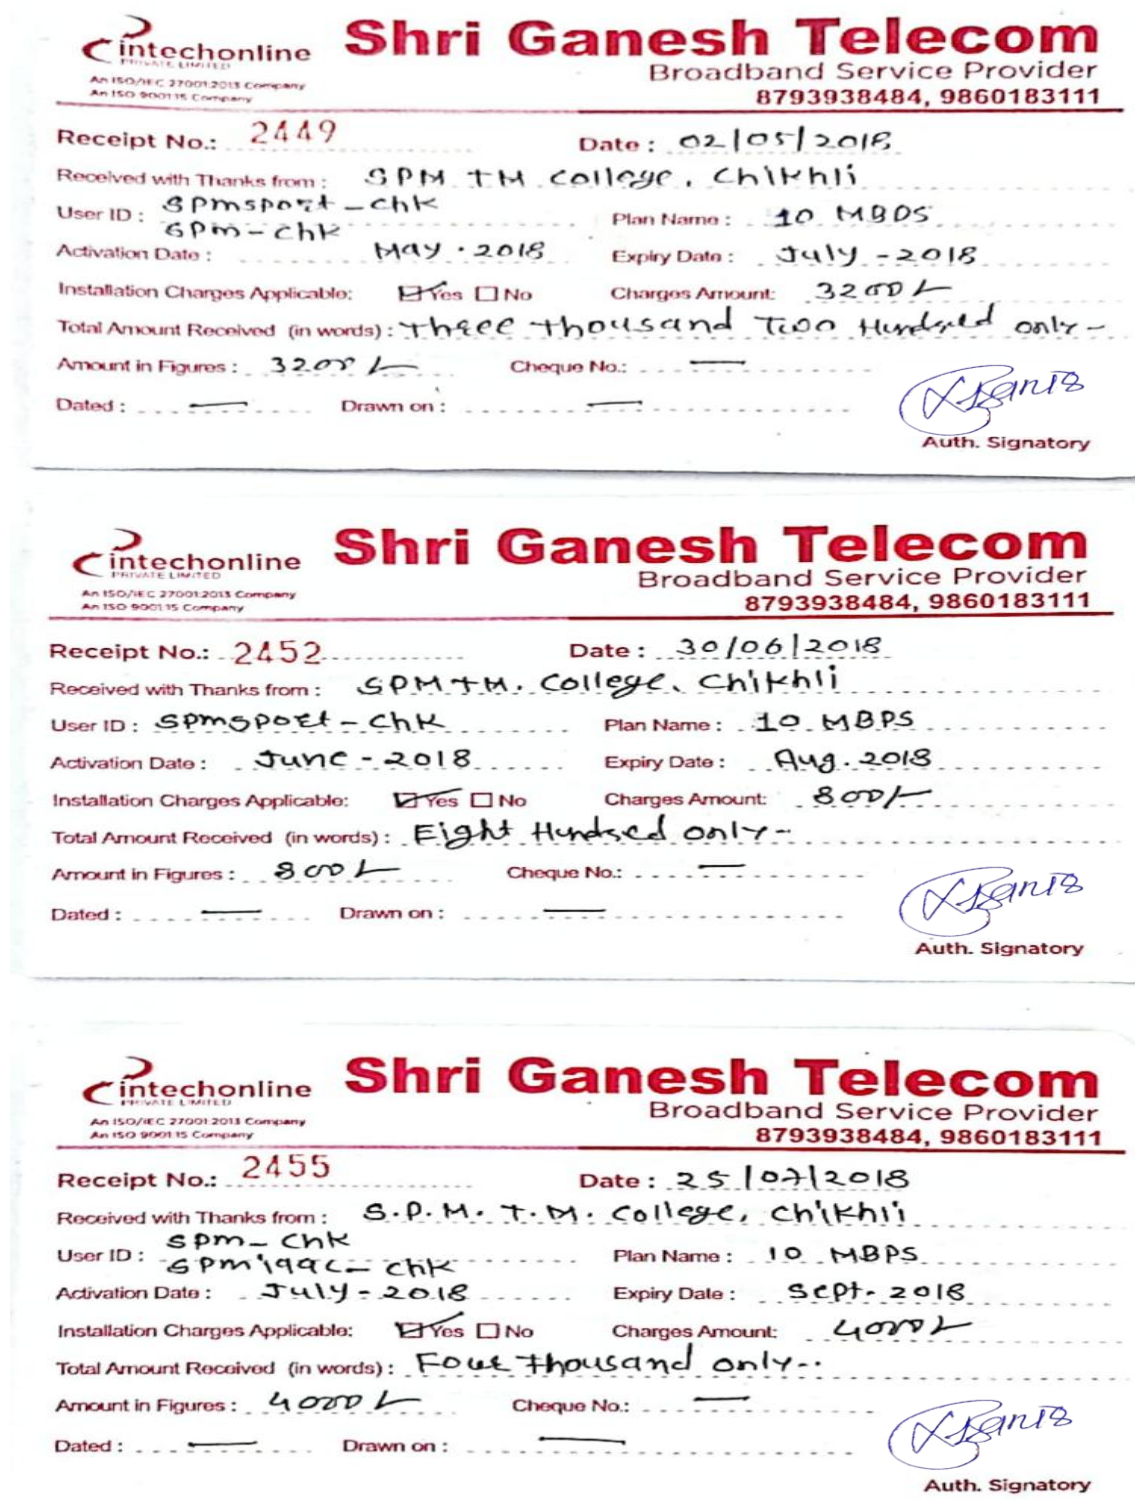 intechonline Shri Ganesh Telecom
PRIVATE LIMITED
Broadband Service Provider
An ISO/IEC 27001:2013 Company
An ISO 9001:15 Company
8793938484, 9860183111
Receipt No.: 2449 Date : 02/05/2018
Received with Thanks from : SPM TM College, Chikhli
User ID : Spmsport-chk
Spm-chk Plan Name : 10 MBPS
Activation Date : May . 2018 Expiry Date : July - 2018
Installation Charges Applicable: Yes No Charges Amount: 3200/-
Total Amount Received (in words) : Three thousand Two Hundred only -
Amount in Figures : 3200/- Cheque No.: —
Dated : — Drawn on : —
Auth. Signatory
intechonline Shri Ganesh Telecom
PRIVATE LIMITED
Broadband Service Provider
An ISO/IEC 27001:2013 Company
An ISO 9001:15 Company
8793938484, 9860183111
Receipt No.: 2452 Date : 30/06/2018
Received with Thanks from : SPMTM. College, Chikhli
User ID : Spmsport-chk Plan Name : 10 MBPS
Activation Date : June - 2018 Expiry Date : Aug. 2018
Installation Charges Applicable: Yes No Charges Amount: 800/-
Total Amount Received (in words) : Eight Hundred only -
Amount in Figures : 800/- Cheque No.: —
Dated : — Drawn on : —
Auth. Signatory
intechonline Shri Ganesh Telecom
PRIVATE LIMITED
Broadband Service Provider
An ISO/IEC 27001:2013 Company
An ISO 9001:15 Company
8793938484, 9860183111
Receipt No.: 2455 Date : 25/07/2018
Received with Thanks from : S.P.M. T.M. College, Chikhli
User ID : spm-chk
Spmiqac-chk Plan Name : 10 MBPS
Activation Date : July - 2018 Expiry Date : Sept. 2018
Installation Charges Applicable: Yes No Charges Amount: 4000/-
Total Amount Received (in words) : Four thousand only -
Amount in Figures : 4000/- Cheque No.: —
Dated : — Drawn on : —
Auth. Signatory